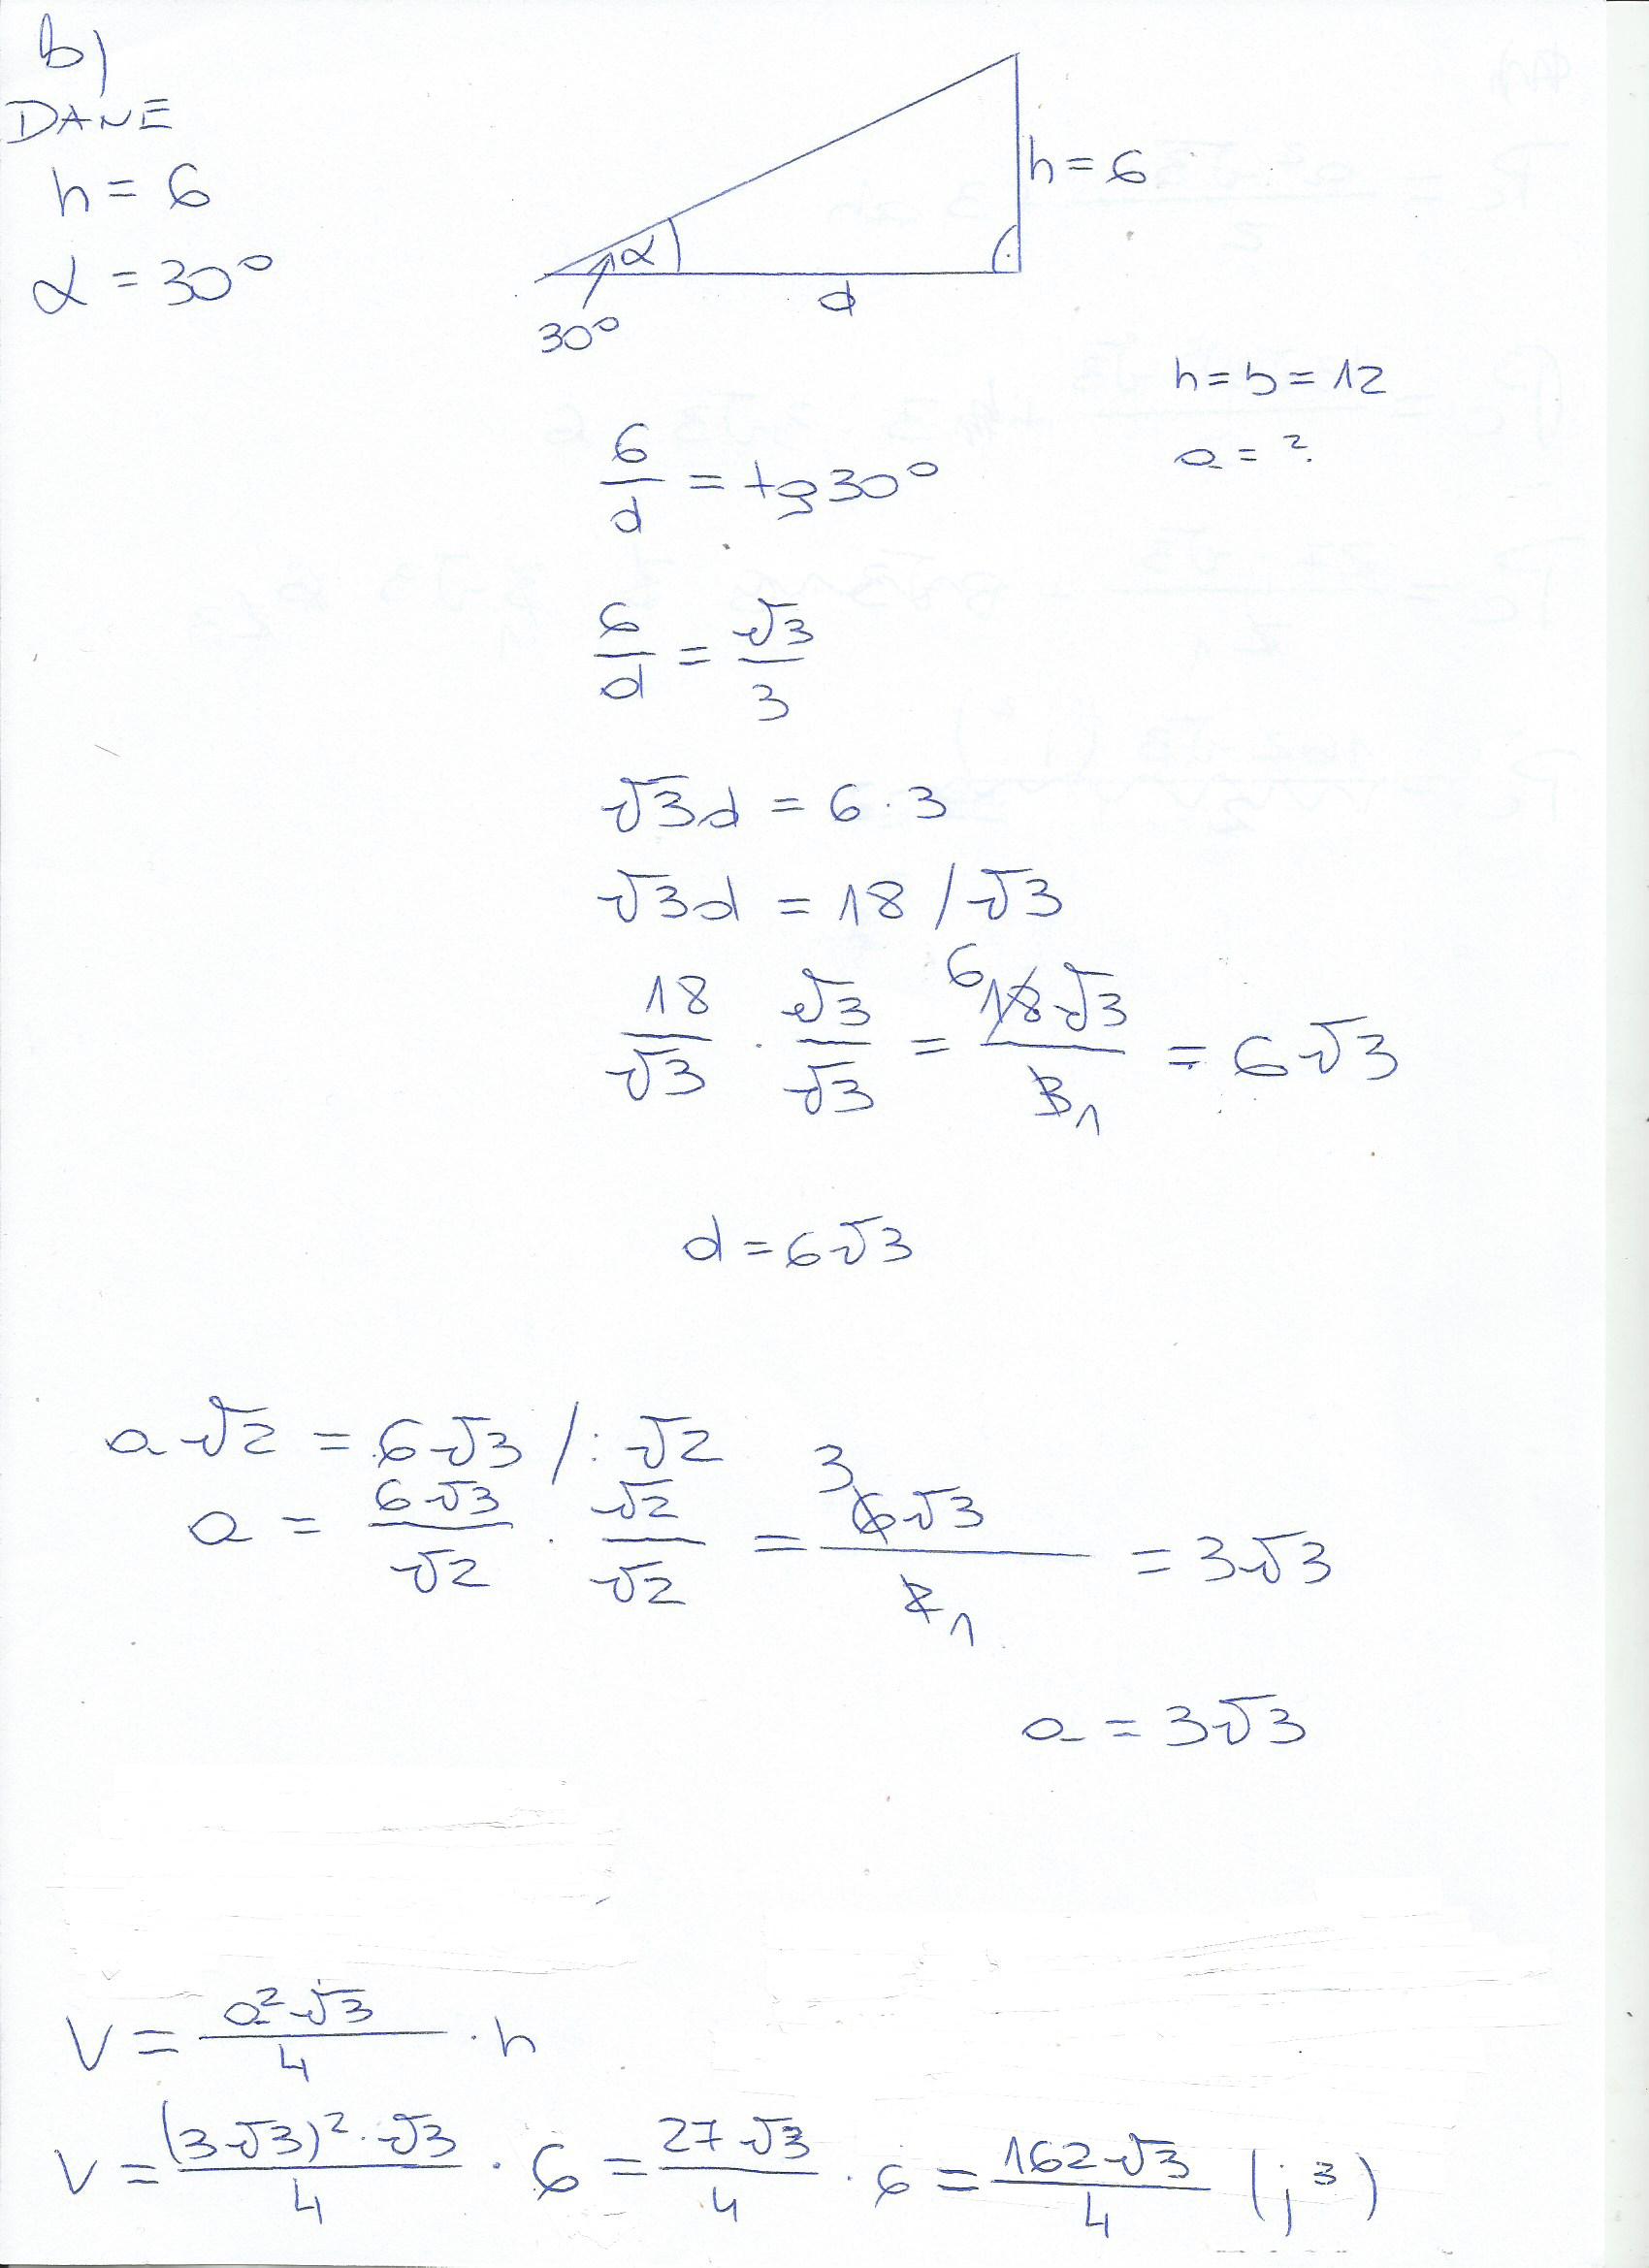 b)
DANE
h = 6
α = 30°
h = 6
α
30°
d
h = b = 12
a = ?
6/d = tg 30°
6/d = √3/3
√3d = 6 · 3
√3d = 18 / √3
18/√3 · √3/√3 = 18√3/3 = 6√3
6
1
d = 6√3
a√2 = 6√3 / : √2
a = 6√3/√2 · √2/√2 = 6√3/2 = 3√3
3
1
a = 3√3
V = a²√3/4 · h
V = (3√3)² · √3/4 · 6 = 27√3/4 · 6 = 162√3/4 (j³)